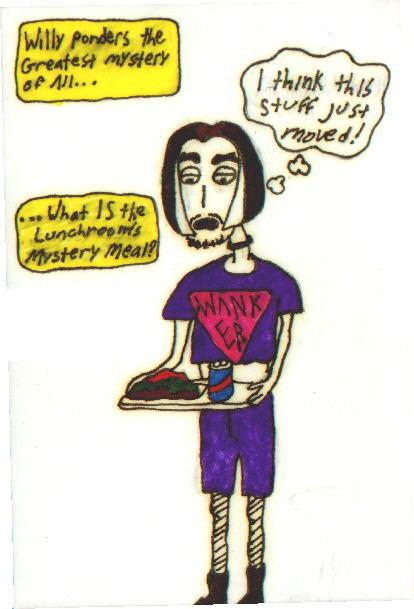 Willy ponders the
Greatest mystery
of All...
I think this
stuff just
moved!
...What IS the
Lunchroom's
Mystery Meal?
WANK
ER